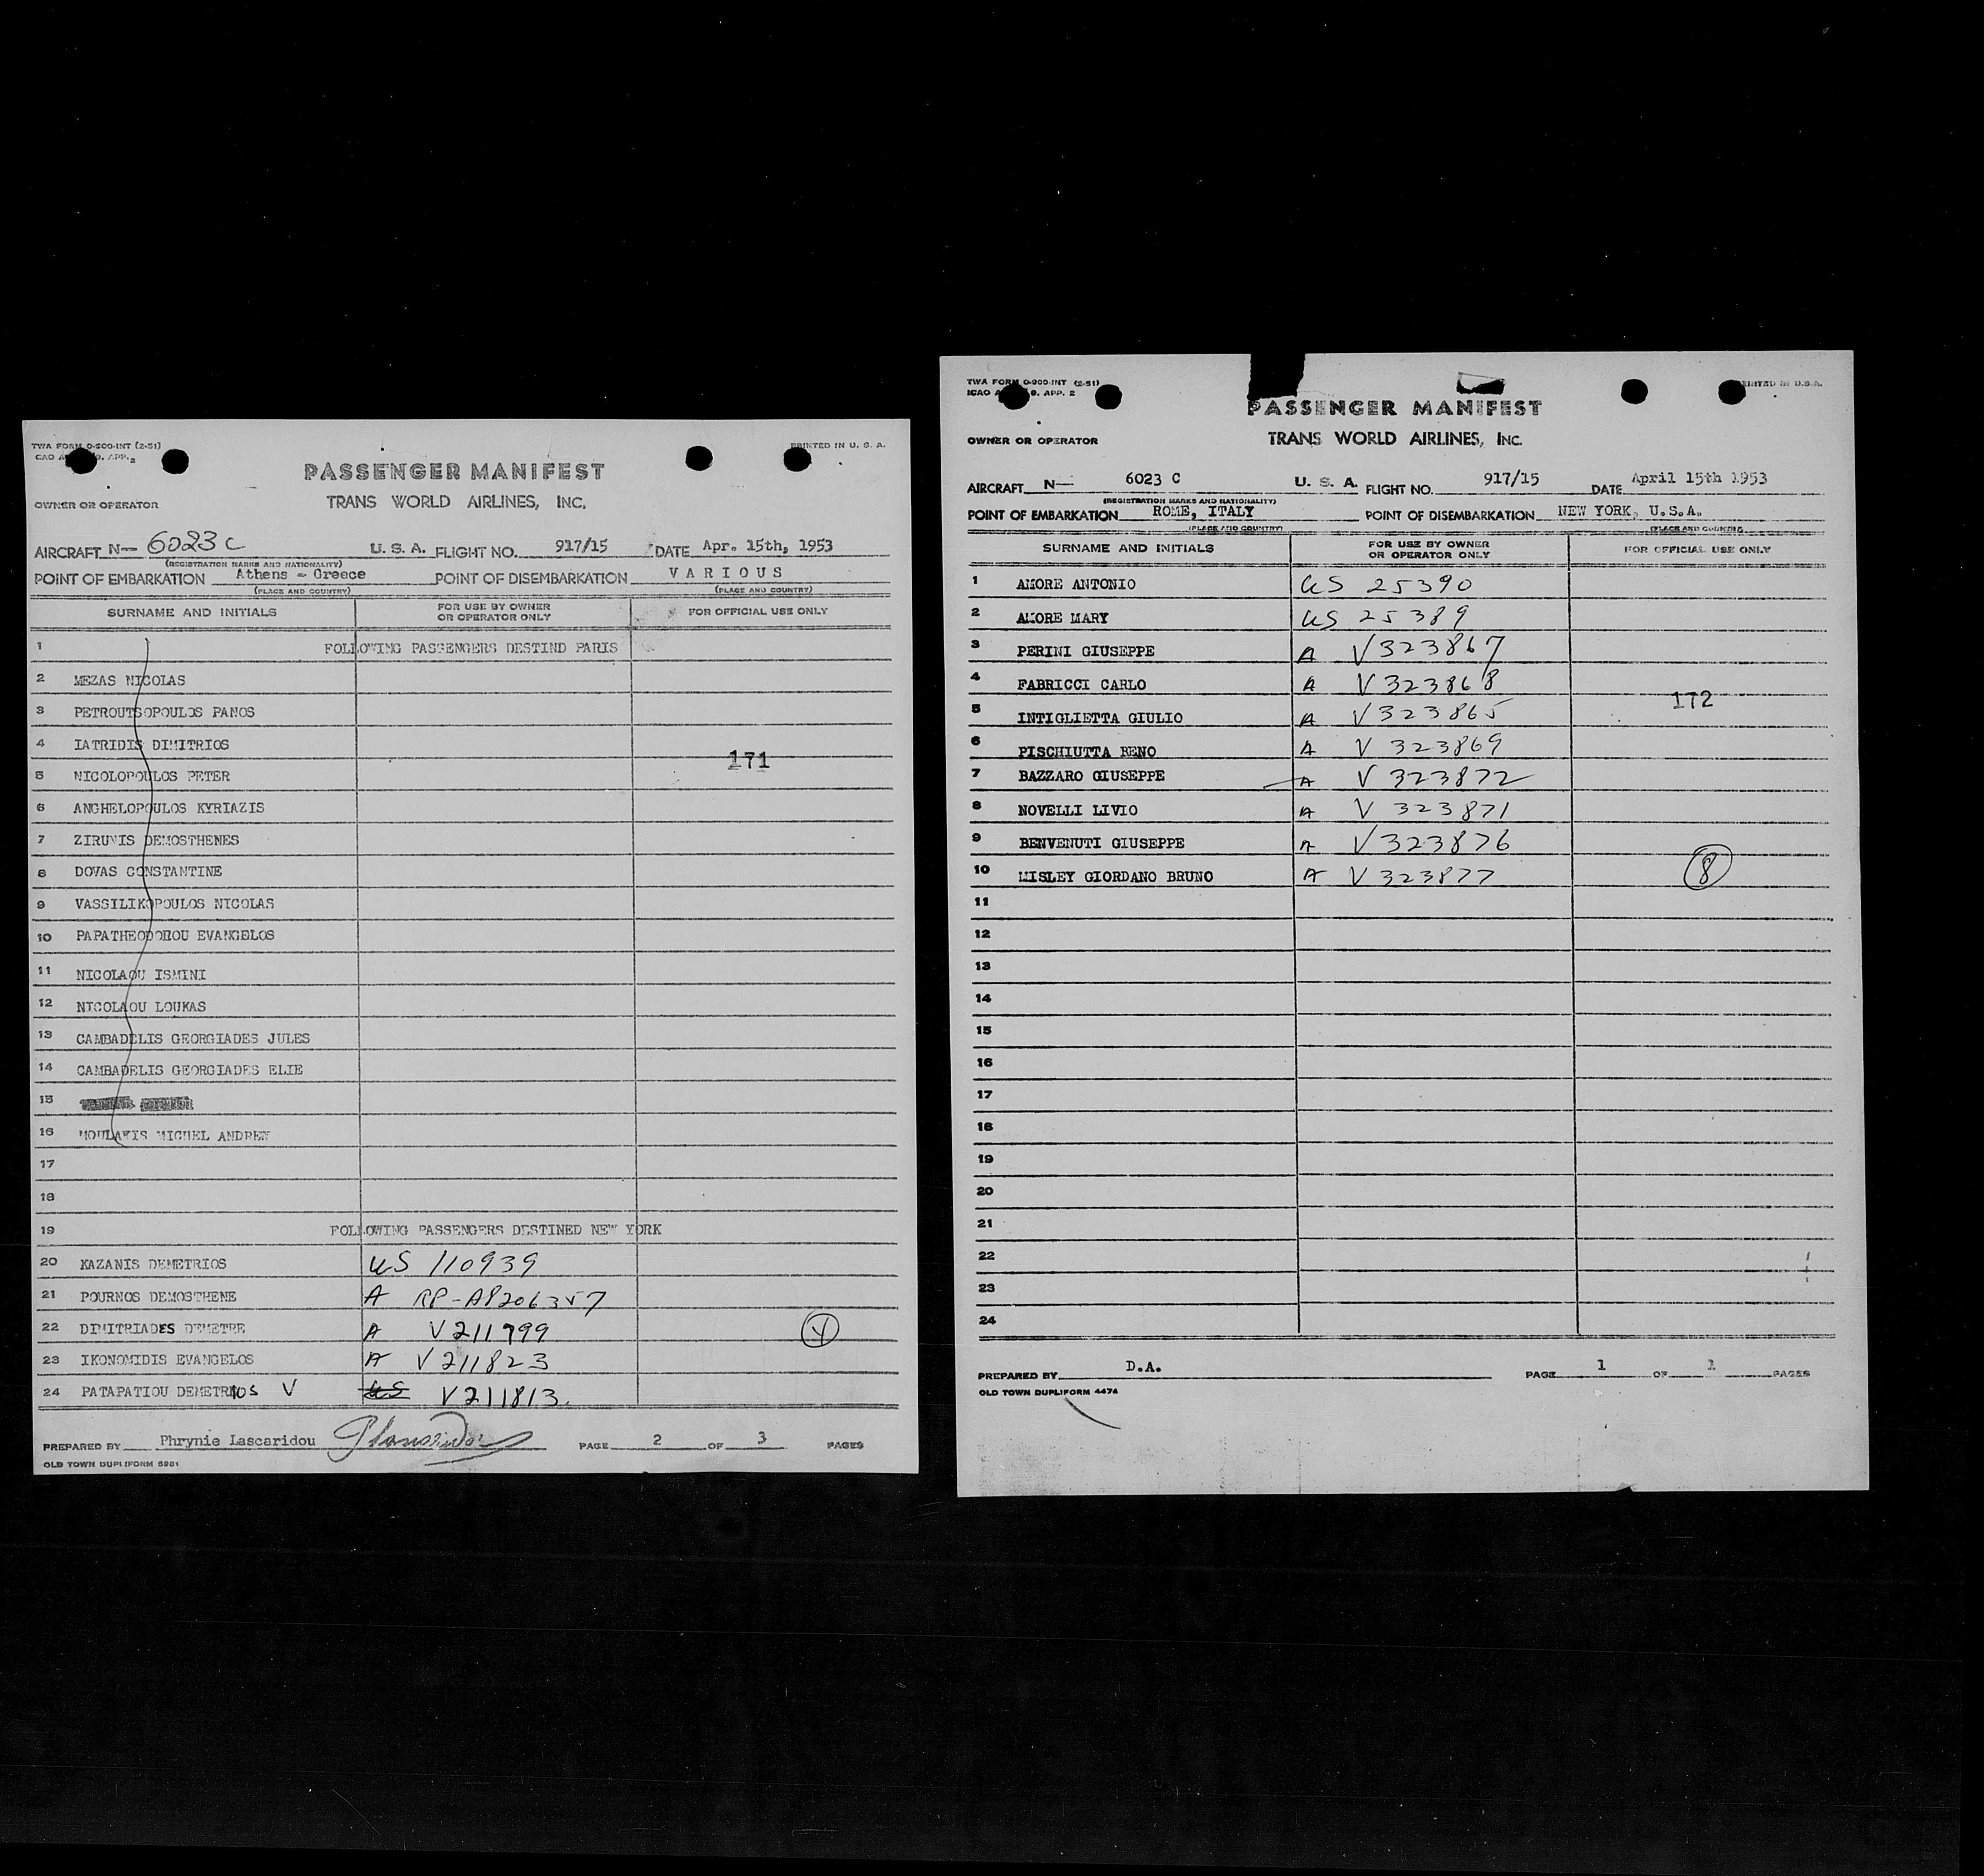 TWA FORM 0-900-INT (2-51)
PRINTED IN U. S. A.
PASSENGER MANIFEST
OWNER OR OPERATOR
TRANS WORLD AIRLINES, INC.
AIRCRAFT N— 6023 C U. S. A. FLIGHT NO. 917/15 DATE Apr. 15th, 1953
(REGISTRATION MARKS AND NATIONALITY)
POINT OF EMBARKATION Athens - Greece POINT OF DISEMBARKATION VARIOUS
(PLACE AND COUNTRY) (PLACE AND COUNTRY)
SURNAME AND INITIALS FOR USE BY OWNER OR OPERATOR ONLY FOR OFFICIAL USE ONLY
1 FOLLOWING PASSENGERS DESTIND PARIS
2 MEZAS NICOLAS
3 PETROUTSOPOULOS PANOS
4 IATRIDIS DIMITRIOS
171
5 NICOLOPOULOS PETER
6 ANGHELOPOULOS KYRIAZIS
7 ZIRUNIS DEMOSTHENES
8 DOVAS CONSTANTINE
9 VASSILIKOPOULOS NICOLAS
10 PAPATHEODOROU EVANGELOS
11 NICOLAOU ISMINI
12 NICOLAOU LOUKAS
13 CAMBADELIS GEORGIADES JULES
14 CAMBADELIS GEORGIADES ELIE
15
16 MOULAKIS MICHEL ANDREW
17
18
19 FOLLOWING PASSENGERS DESTINED NEW YORK
20 KAZANIS DEMETRIOS US 110939
21 POURNOS DEMOSTHENE A RP-A8206357
22 DIMITRIADES DEMETRE A V211799
23 IKONOMIDIS EVANGELOS A V211823
24 PATAPATIOU DEMETRIOS V US V211813.
PREPARED BY Phrynie Lascaridou PAGE 2 OF 3 PAGES
OLD TOWN DUPLIFORM 5981
TWA FORM 0-900-INT (2-51)
PRINTED IN U.S.A.
ICAO APP. 2
PASSENGER MANIFEST
OWNER OR OPERATOR
TRANS WORLD AIRLINES, INC.
AIRCRAFT N— 6023 C U. S. A. FLIGHT NO. 917/15 DATE April 15th 1953
(REGISTRATION MARKS AND NATIONALITY)
POINT OF EMBARKATION ROME, ITALY POINT OF DISEMBARKATION NEW YORK, U.S.A.
(PLACE AND COUNTRY) (PLACE AND COUNTRY)
SURNAME AND INITIALS FOR USE BY OWNER OR OPERATOR ONLY FOR OFFICIAL USE ONLY
1 AMORE ANTONIO US 25390
2 AMORE MARY US 25389
3 PERINI GIUSEPPE A V323867
4 FABRICCI CARLO A V323868
172
5 INTIGLIETTA GIULIO A V323865
6 PISCHIUTTA BENO A V 323869
7 BAZZARO GIUSEPPE A V 323872
8 NOVELLI LIVIO A V 323871
9 BENVENUTI GIUSEPPE A V323876
10 MISLEY GIORDANO BRUNO A V 323877 8
11
12
13
14
15
16
17
18
19
20
21
22
23
24
PREPARED BY D.A. PAGE 1 OF 1 PAGES
OLD TOWN DUPLIFORM 4474